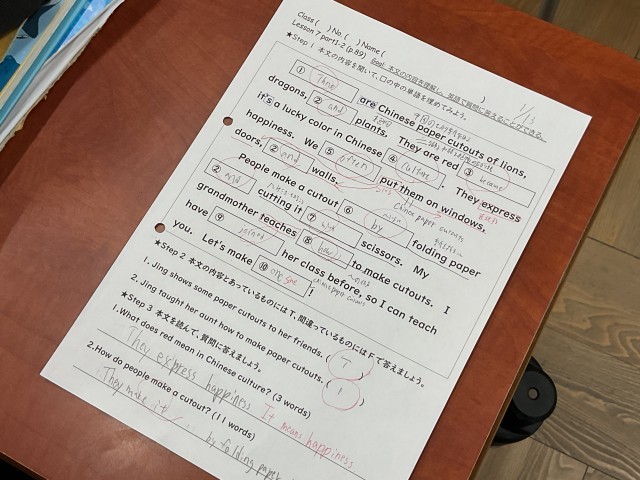 Class ( ) No. ( ) Name ( )
Lesson 7 part1-2 (p.89) Goal 本文の内容を理解し、英語で質問に答えることができる。
1/13
★Step 1 本文の内容を聞いて、口の中の単語を埋めてみよう。
① These are Chinese paper cutouts of lions,
dragons, ② and plants. They are red ③ because
it's a lucky color in Chinese ④ culture. They express
happiness. We ⑤ often put them on windows,
doors, ② and walls.
People make a cutout ⑥ by folding paper
② and cutting it ⑦ with scissors. My
grandmother teaches ⑧ how to make cutouts. I
have ⑨ joined her class before, so I can teach
you. Let's make ⑩ one !
Chinese paper cutouts
★Step 2 本文の内容とあっているものにはT、間違っているものにはFで答えましょう。
1. Jing shows some paper cutouts to her friends. ( T )
2. Jing taught her aunt how to make paper cutouts. ( )
★Step 3 本文を読んで、質問に答えましょう。
1.What does red mean in Chinese culture? (3 words)
They express happiness It means happiness
2.How do people make a cutout? (11 words)
They make it by folding paper